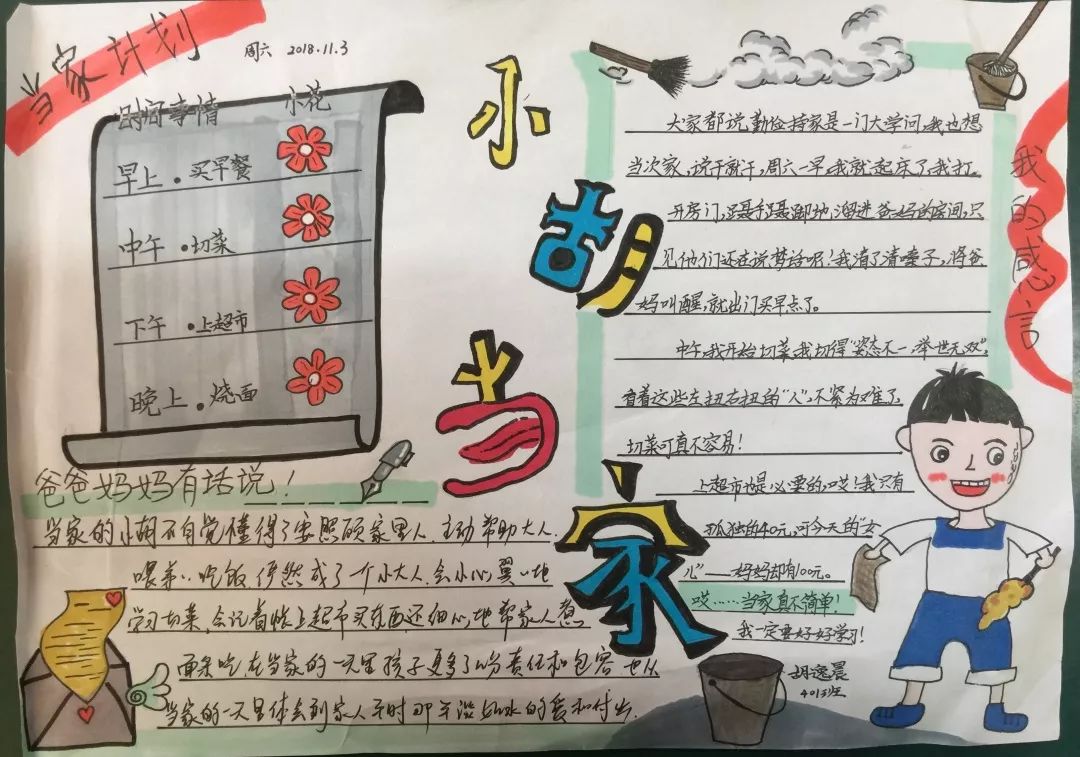 当家计划
周六 2018.11.3
时间事情 小花
早上 · 买早餐
中午 · 切菜
下午 · 上超市
晚上 · 烧面
小胡当家
我的感言
大家都说勤俭持家是一门大学问,我也想
当次家,说干就干,周六一早,我就起床了,我打
开房门,蹑手蹑脚地溜进爸妈的房间,只
见他们还在说梦话呢!我清了清嗓子,将爸
妈叫醒,就出门买早点了。
中午,我开始切菜,我切得"姿态不一,举世无双",
看着这些左扭右扭的"人",不紧为难了,
切菜可真不容易!
上超市也是必要的,哎!我只有
孤独的40元,可今天的"女
心"——妈妈却有100元。
哎……当家真不简单!
我一定要好好学习!
胡逸晨
401班
爸爸妈妈有话说!
当家的小胡不自觉懂得了要照顾家里人,主动帮助大人,
喂弟弟吃饭,俨然成了一个小大人,会小心翼翼地
学习切菜,会记着账上超市买东西还细心地帮家人想
再来吃,在当家的一天里孩子更多了份责任和包容,也从
当家的一天里体会到家人平时那平淡如水的爱和付出.